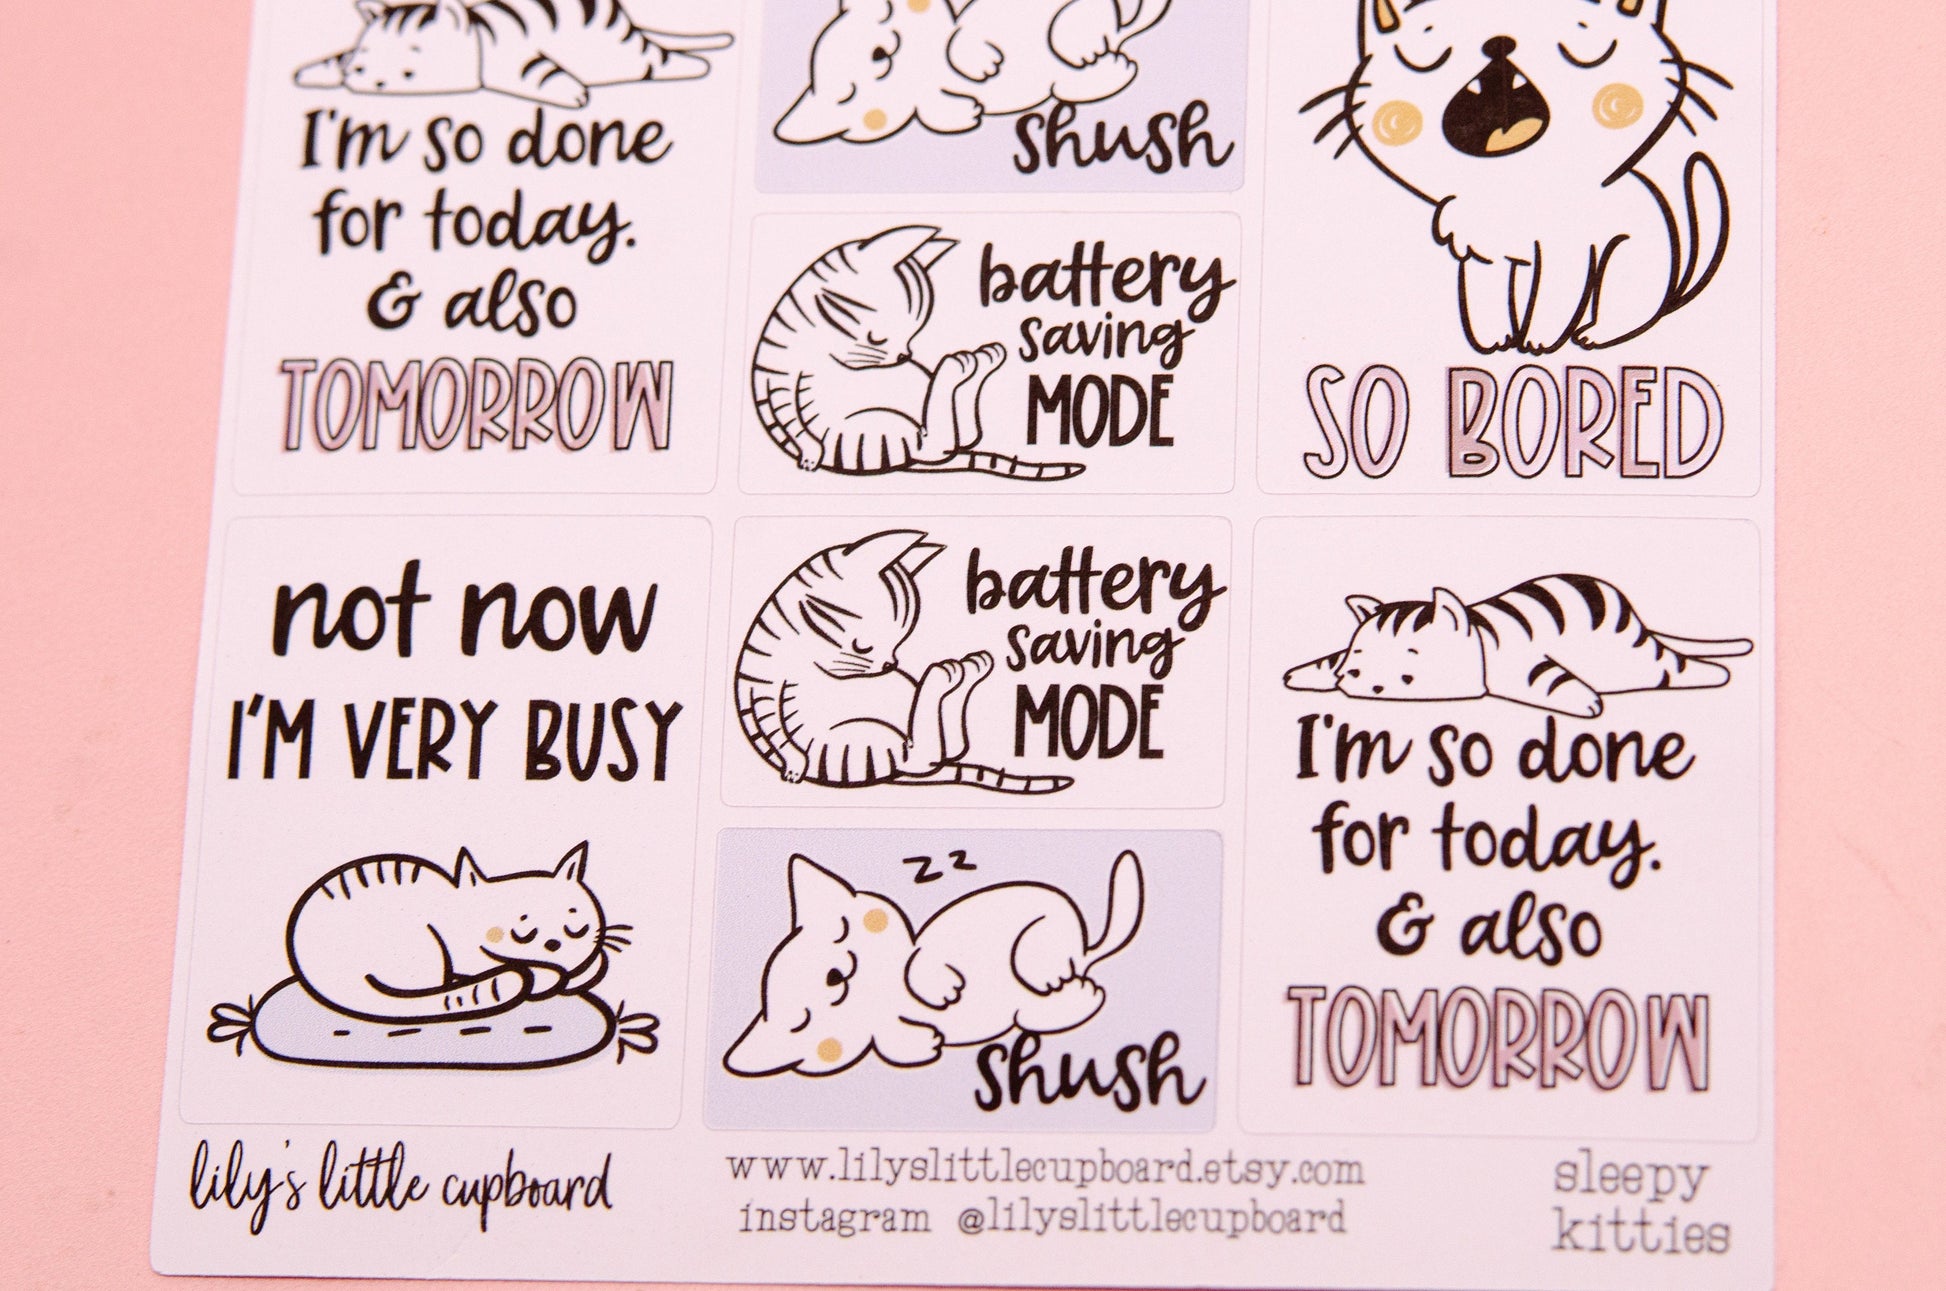 I'm so done
for today.
& also
TOMORROW
shush
battery
saving
MODE
SO BORED
not now
I'M VERY BUSY
battery
saving
MODE
zz
shush
I'm so done
for today.
& also
TOMORROW
lily's little cupboard
www.lilyslittlecupboard.etsy.com
instagram @lilyslittlecupboard
sleepy
kitties